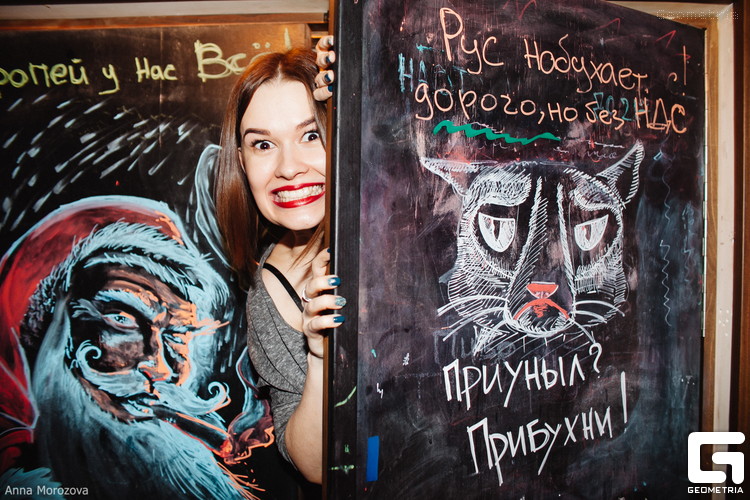 ромей у нас Всё!
Рус набухает!
дорого, но без НДС
Приуныл?
Прибухни!
Anna Morozova
GEOMETRIA